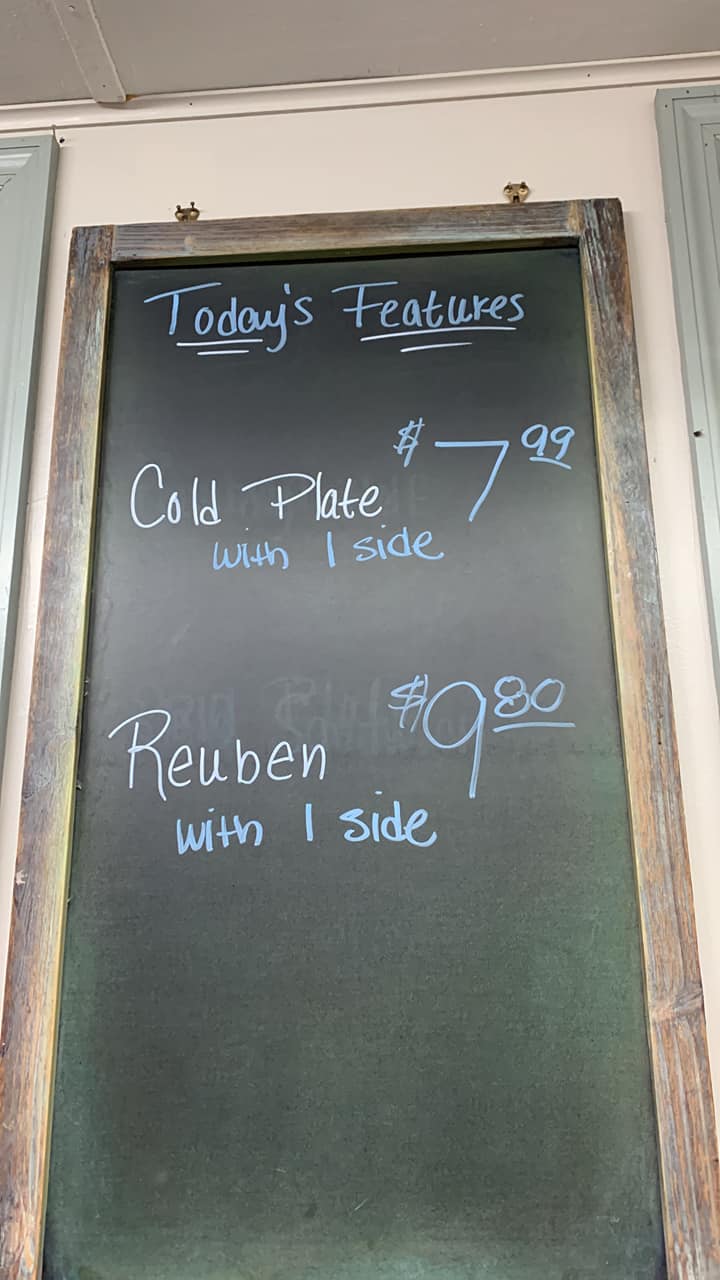 Today's Features
$7.99
Cold Plate
with 1 side
$9.80
Reuben
with 1 side